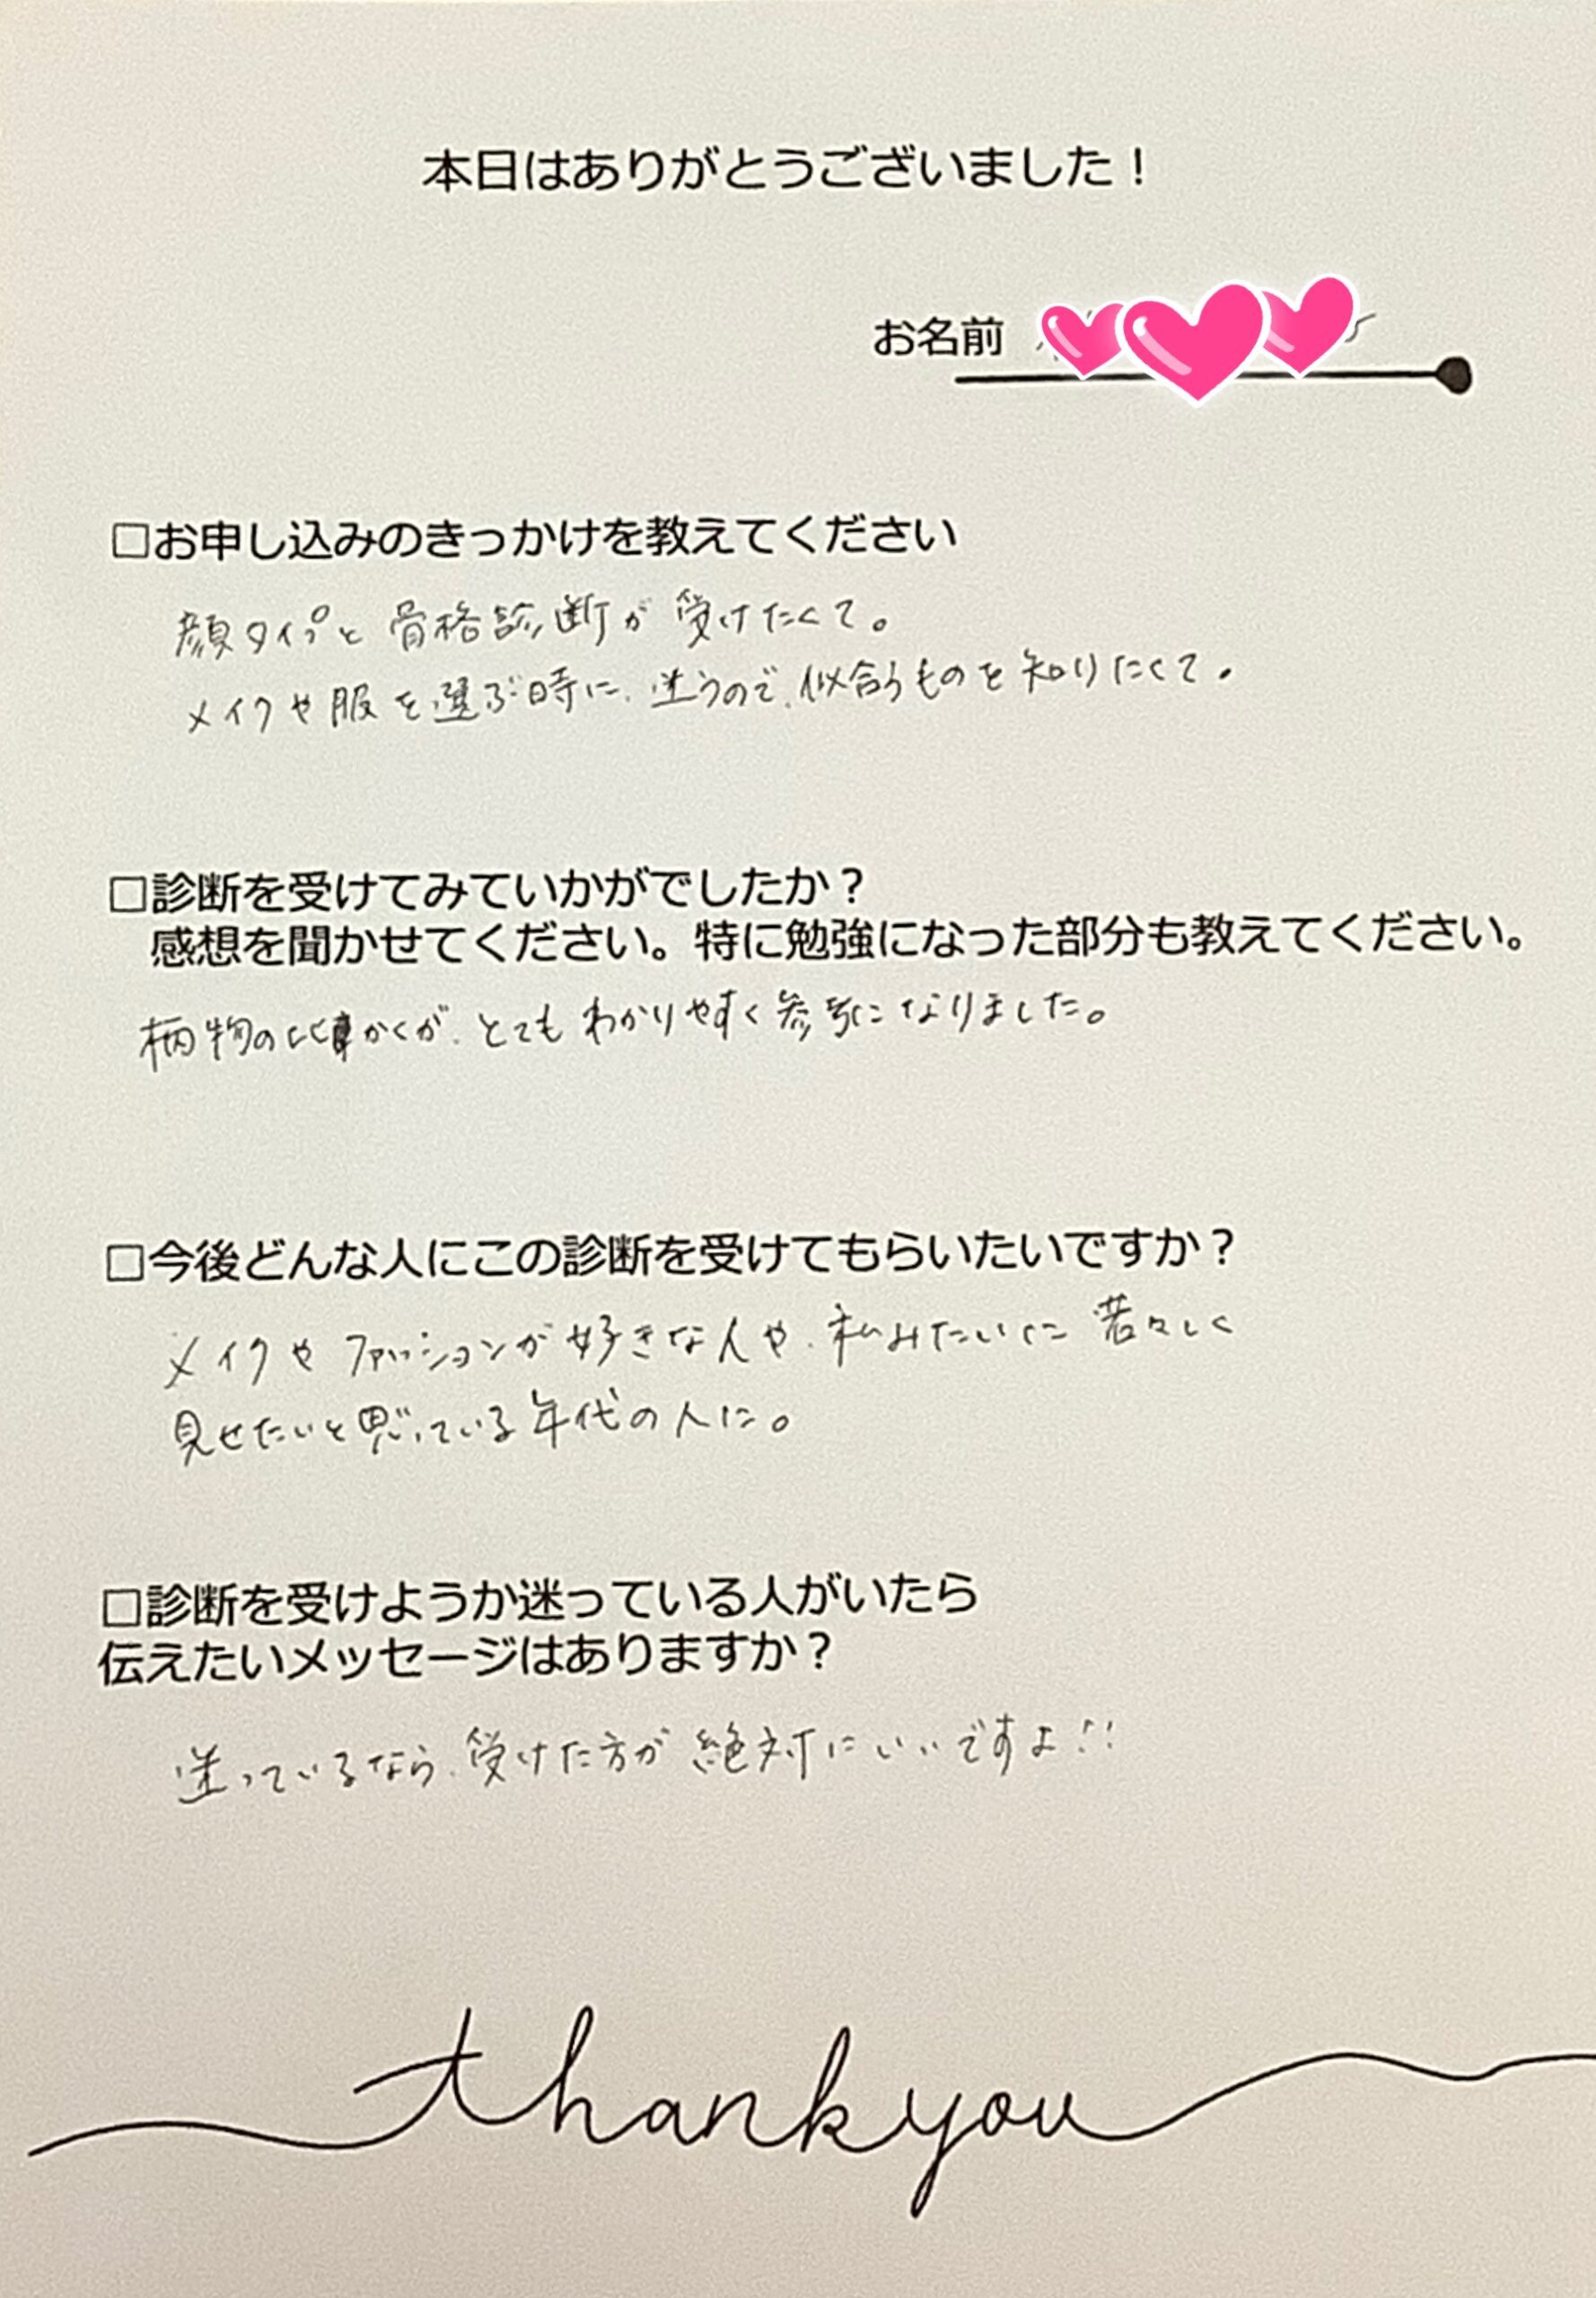 本日はありがとうございました！
お名前
□お申し込みのきっかけを教えてください
顔タイプと骨格診断が受けたくて。
メイクや服を選ぶ時に、迷うので、似合うものを知りたくて。
□診断を受けてみていかがでしたか？
感想を聞かせてください。特に勉強になった部分も教えてください。
柄物の比かくが、とてもわかりやすく参考になりました。
□今後どんな人にこの診断を受けてもらいたいですか？
メイクやファッションが好きな人や、私みたいに若々しく
見せたいと思っている年代の人に。
□診断を受けようか迷っている人がいたら
伝えたいメッセージはありますか？
迷っているなら、受けた方が絶対にいいですよ!!
thank you